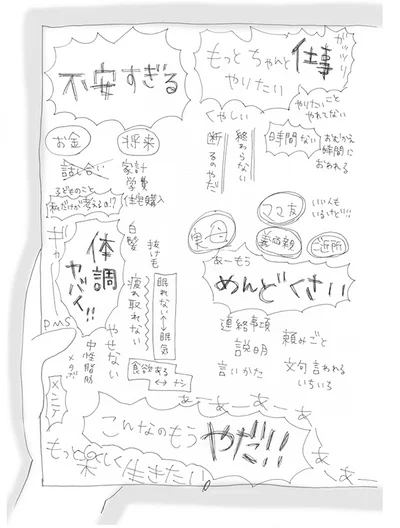 不安すぎる
お金
将来
話し合い
家計
学費
住宅購入
子どものこと
私だけが考えるの!?
もっとちゃんと仕事
やりたい
ガッツリ
やりたいこと
やれてない
くやしい
断るのやだ
終わらない
時間ない
お迎えの
時間に
おわれる
ママ友
いい人も
いるけど!!!
実母
義両親
ご近所
あーもう
めんどくさい
連絡事項
説明
言いかた
頼みごと
文句言われる
いちいち
体調
ヤバイ!!
白髪
抜け毛
疲れ取れない
眠れない↔眠気
やせない
食欲ある
↔ナシ
PMS
中性脂肪
メタボ
メンタル
あーあーあーあー
こんなのもう
やだ!!!
もっと楽しく生きたい
あーあー